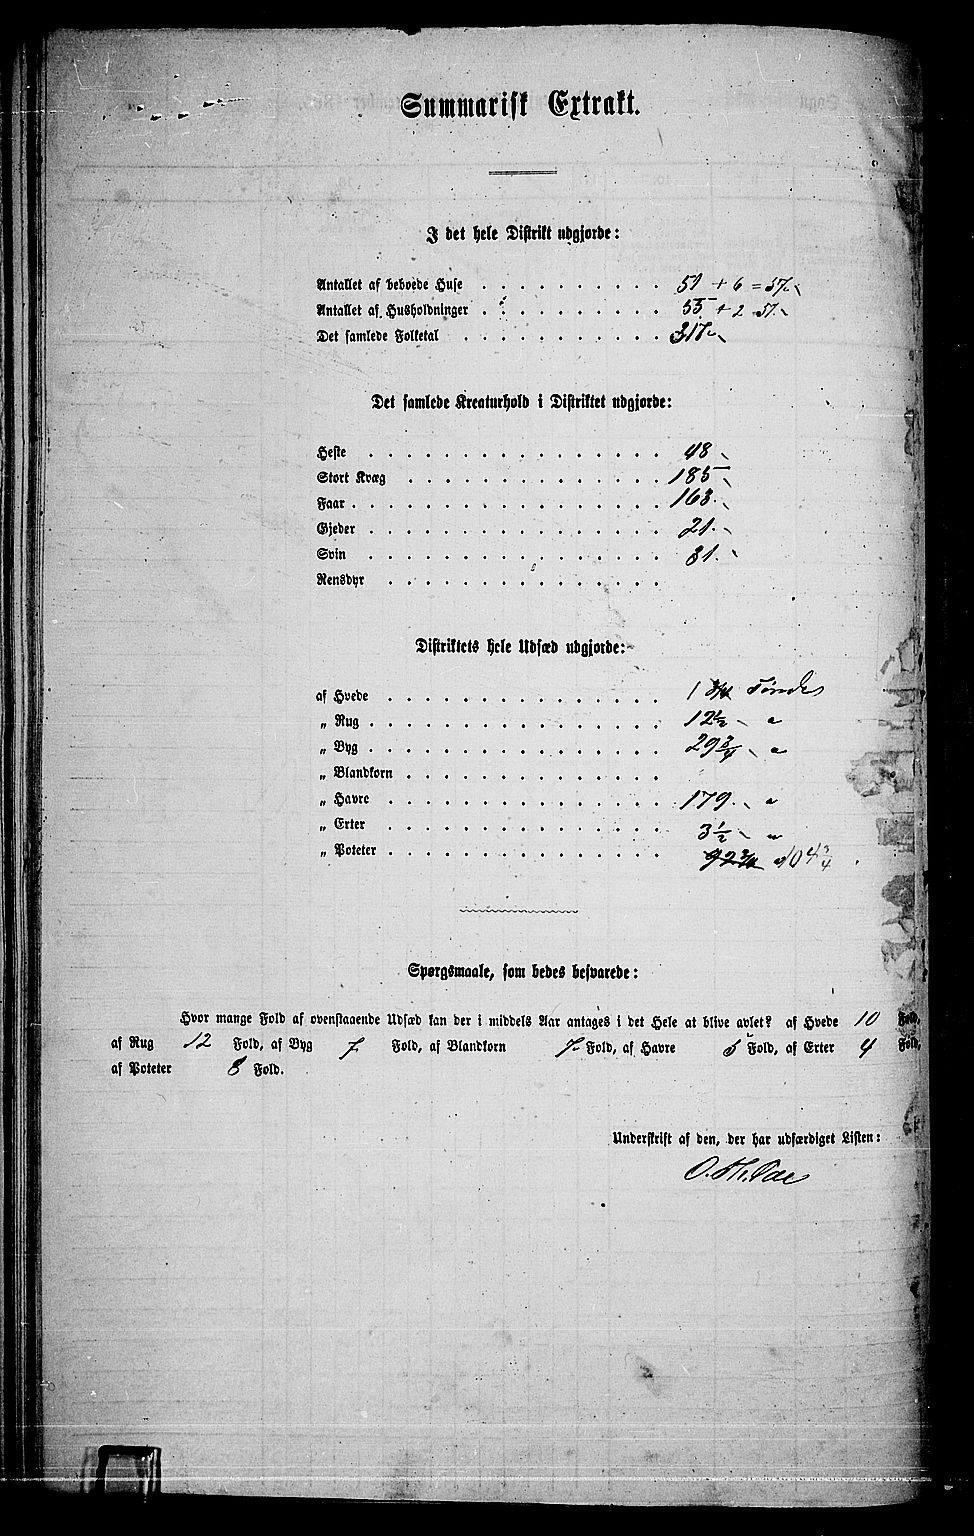 Summarisk Extrakt.
I det hele Distrikt udgjorde:
Antallet af beboede Huse . . . . . . . . . . 51 + 6 = 57
Antallet af Husholdninger . . . . . . . . . . 55 + 2 57
Det samlede Folketal . . . . . . . . . . . 317
Det samlede Kreaturhold i Distriktet udgjorde:
Heste . . . . . . . . . . . . . . . . 48
Stort Kvæg . . . . . . . . . . . . . . 185
Faar . . . . . . . . . . . . . . . . . 163
Gjeder . . . . . . . . . . . . . . . 21
Svin . . . . . . . . . . . . . . . . 31
Rensdyr . . . . . . . . . . . . . . .
Distriktets hele Udsæd udgjorde:
af Hvede . . . . . . . . . . . . . . . 1 3/4 Tønder
„ Rug . . . . . . . . . . . . . . . . 12 1/2 "
„ Byg . . . . . . . . . . . . . . . . 29 3/4 "
„ Blandkorn . . . . . . . . . . . . . .
„ Havre . . . . . . . . . . . . . . . 179 "
„ Erter . . . . . . . . . . . . . . . 3 1/2 "
„ Poteter . . . . . . . . . . . . . . . 92 3/4 " 104 3/4
Spørgsmaale, som bedes besvarede:
Hvor mange Fold af ovenstaaende Udsæd kan der i middels Aar antages i det Hele at blive avlet? af Hvede 10 Fold,
af Rug 12 Fold, af Byg 7 Fold, af Blandkorn 7 Fold, af Havre 5 Fold, af Erter 4 Fold,
af Poteter 8 Fold.
Underskrift af den, der har udfærdiget Listen:
O. Th.